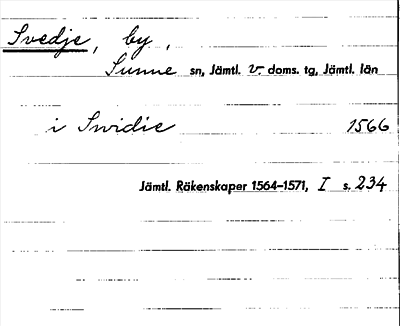 Svedje, by,
Sunne sn, Jämtl. v. doms. tg, Jämtl. län
i Swidie 1566
Jämtl. Räkenskaper 1564-1571, I s. 234